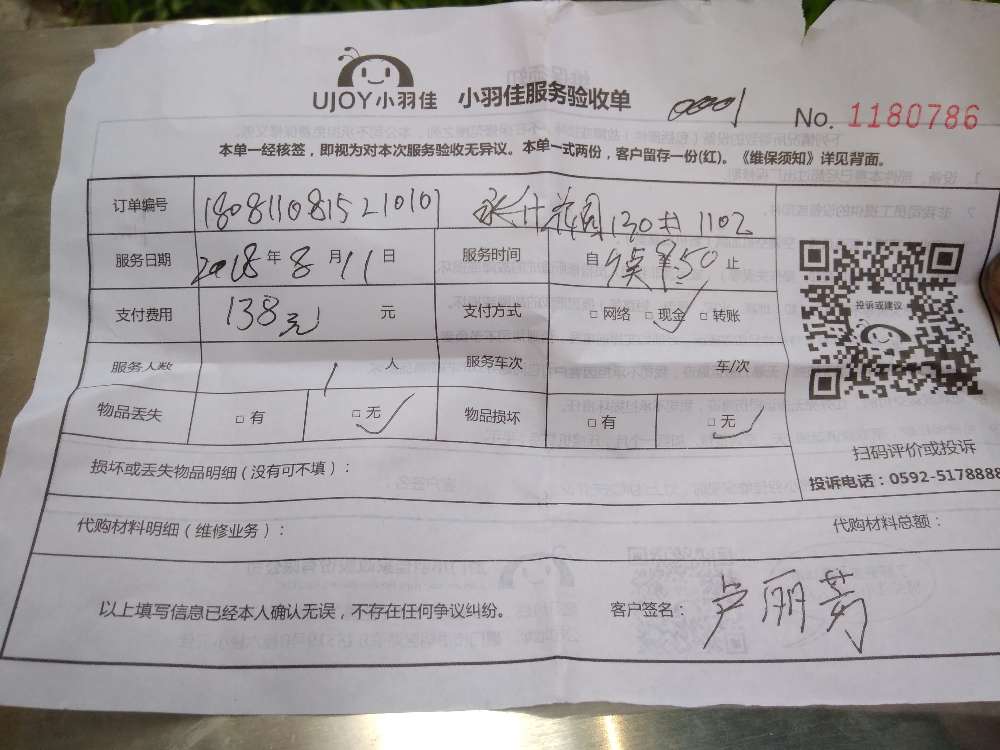 UJOY小羽佳 小羽佳服务验收单 0001 No. 1180786
本单一经核签，即视为对本次服务验收无异议。本单一式两份，客户留存一份(红)。《维保须知》详见背面。
订单编号 180811081521010 130 1102
服务日期 2018年8月11日 服务时间 自 8:50止
支付费用 138元 元 支付方式 □网络 □现金 ✓ □转账
服务人数 1 人 服务车次 车/次
物品丢失 □有 □无 ✓ 物品损坏 □有 □无 ✓
投诉或建议
扫码评价或投诉
投诉电话：0592-5178888
损坏或丢失物品明细（没有可不填）：
代购材料明细（维修业务）： 代购材料总额：
以上填写信息已经本人确认无误，不存在任何争议纠纷。 客户签名：卢丽